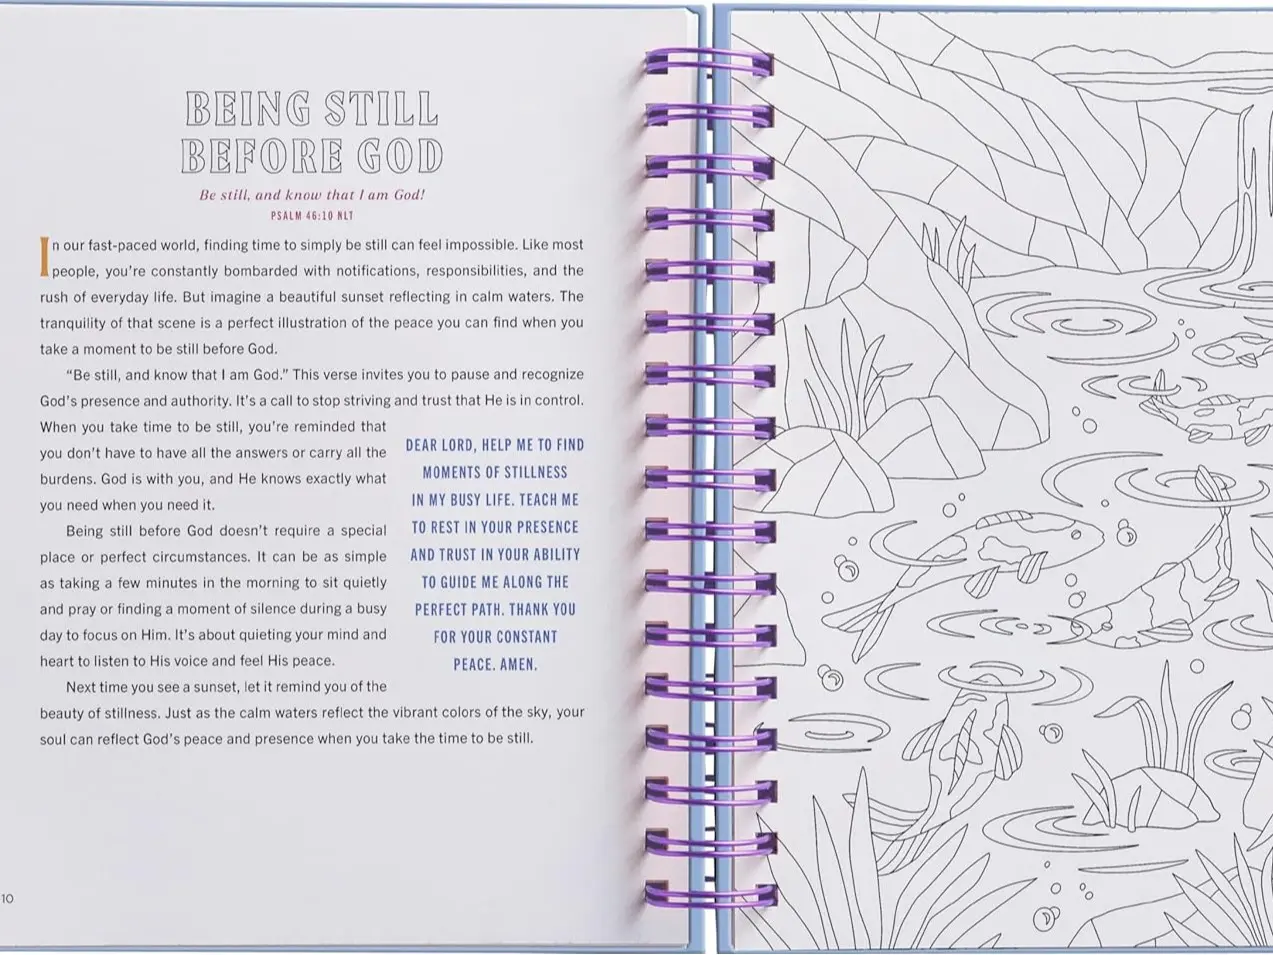 BEING STILL
BEFORE GOD
Be still, and know that I am God!
PSALM 46:10 NLT
In our fast-paced world, finding time to simply be still can feel impossible. Like most
people, you're constantly bombarded with notifications, responsibilities, and the
rush of everyday life. But imagine a beautiful sunset reflecting in calm waters. The
tranquility of that scene is a perfect illustration of the peace you can find when you
take a moment to be still before God.
“Be still, and know that I am God.” This verse invites you to pause and recognize
God's presence and authority. It's a call to stop striving and trust that He is in control.
When you take time to be still, you're reminded that
you don't have to have all the answers or carry all the
burdens. God is with you, and He knows exactly what
you need when you need it.
Being still before God doesn't require a special
place or perfect circumstances. It can be as simple
as taking a few minutes in the morning to sit quietly
and pray or finding a moment of silence during a busy
day to focus on Him. It's about quieting your mind and
heart to listen to His voice and feel His peace.
Next time you see a sunset, let it remind you of the
beauty of stillness. Just as the calm waters reflect the vibrant colors of the sky, your
soul can reflect God's peace and presence when you take the time to be still.
DEAR LORD, HELP ME TO FIND
MOMENTS OF STILLNESS
IN MY BUSY LIFE. TEACH ME
TO REST IN YOUR PRESENCE
AND TRUST IN YOUR ABILITY
TO GUIDE ME ALONG THE
PERFECT PATH. THANK YOU
FOR YOUR CONSTANT
PEACE. AMEN.
10